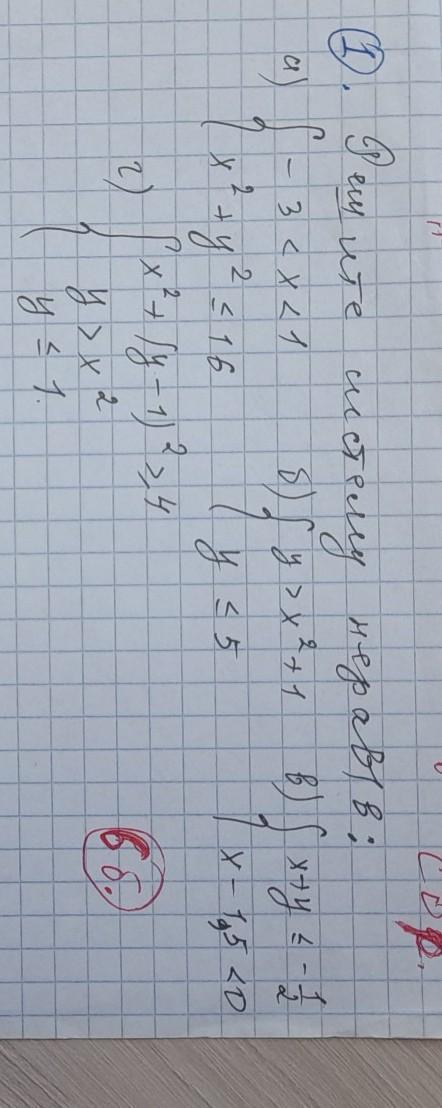 1. Решите систему нерав/в:
а) { -3 < x < 1
x² + y² ≤ 16
б) { y > x² + 1
y ≤ 5
в) { x + y ≤ -1/2
x - 1,5 < 0
г) { x² + (y - 1)² ≥ 4
y > x²
y ≤ 1.
6 б.